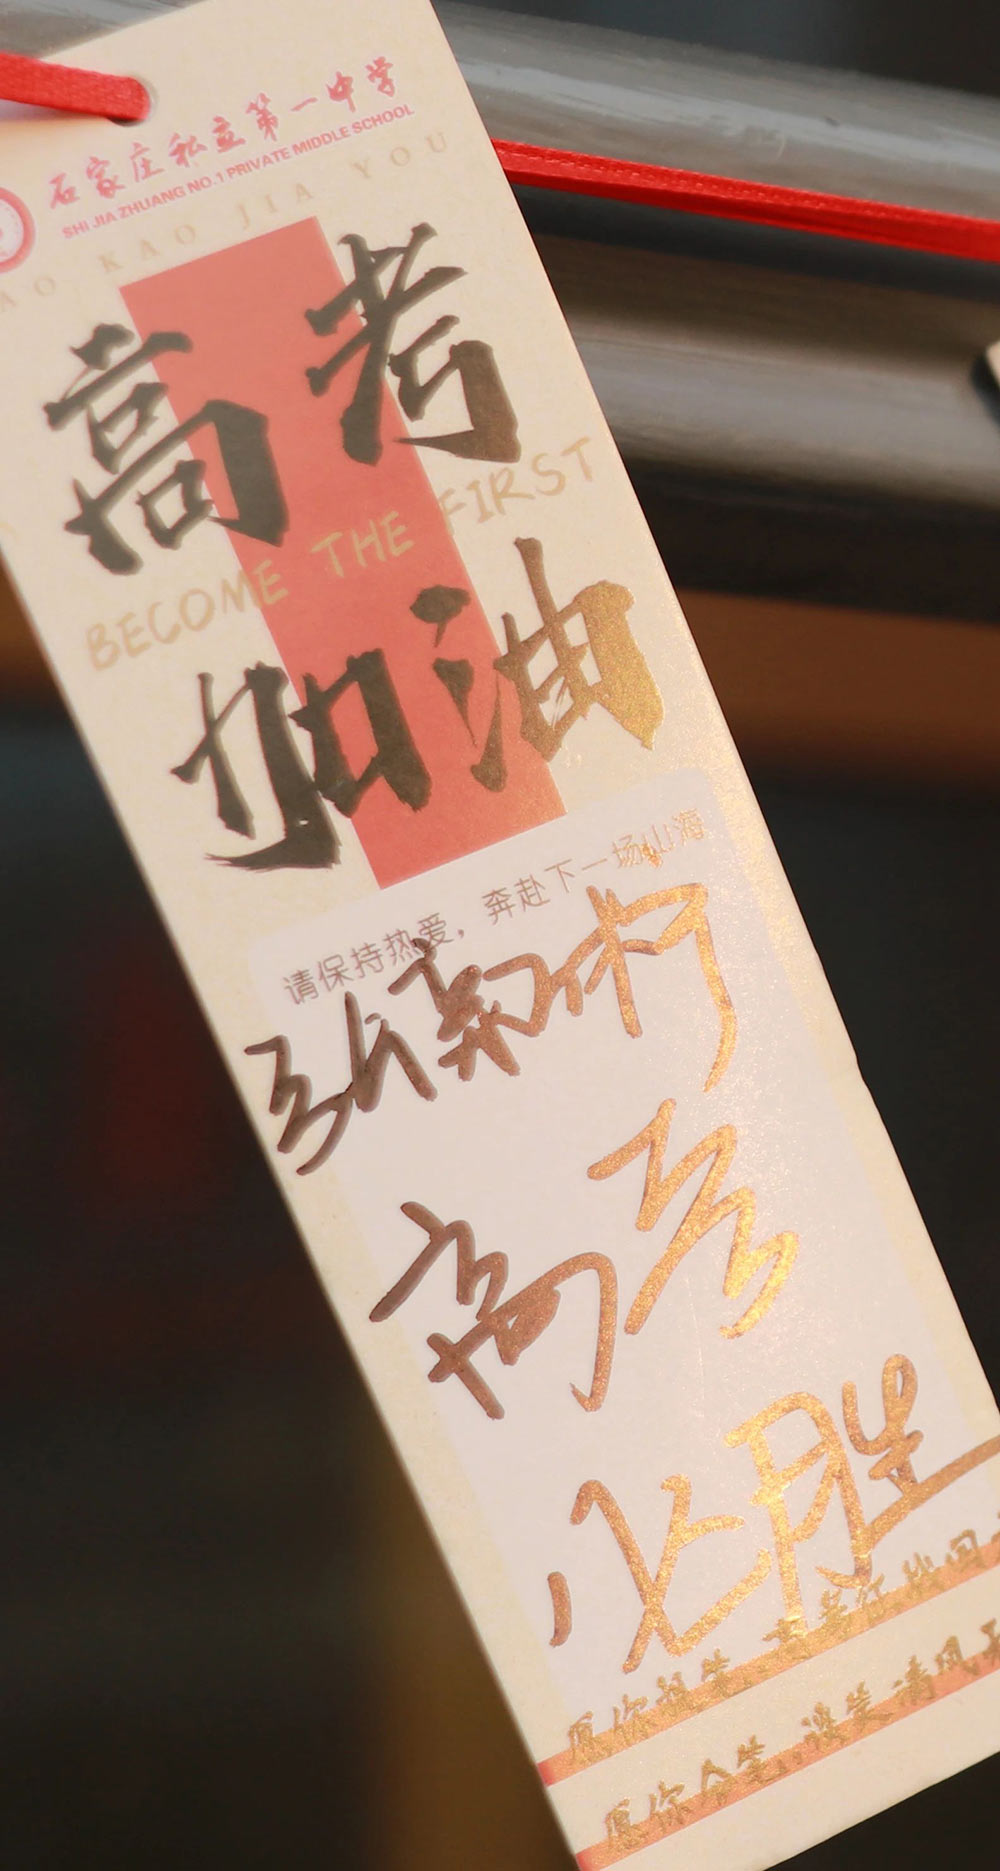 石家庄私立第一中学
SHI JIA ZHUANG NO.1 PRIVATE MIDDLE SCHOOL
AO KAO JIA YOU
高考
BECOME THE FIRST
加油
请保持热爱，奔赴下一场山海
高考
必胜
愿你提笔
愿你合笔，谈笑清风